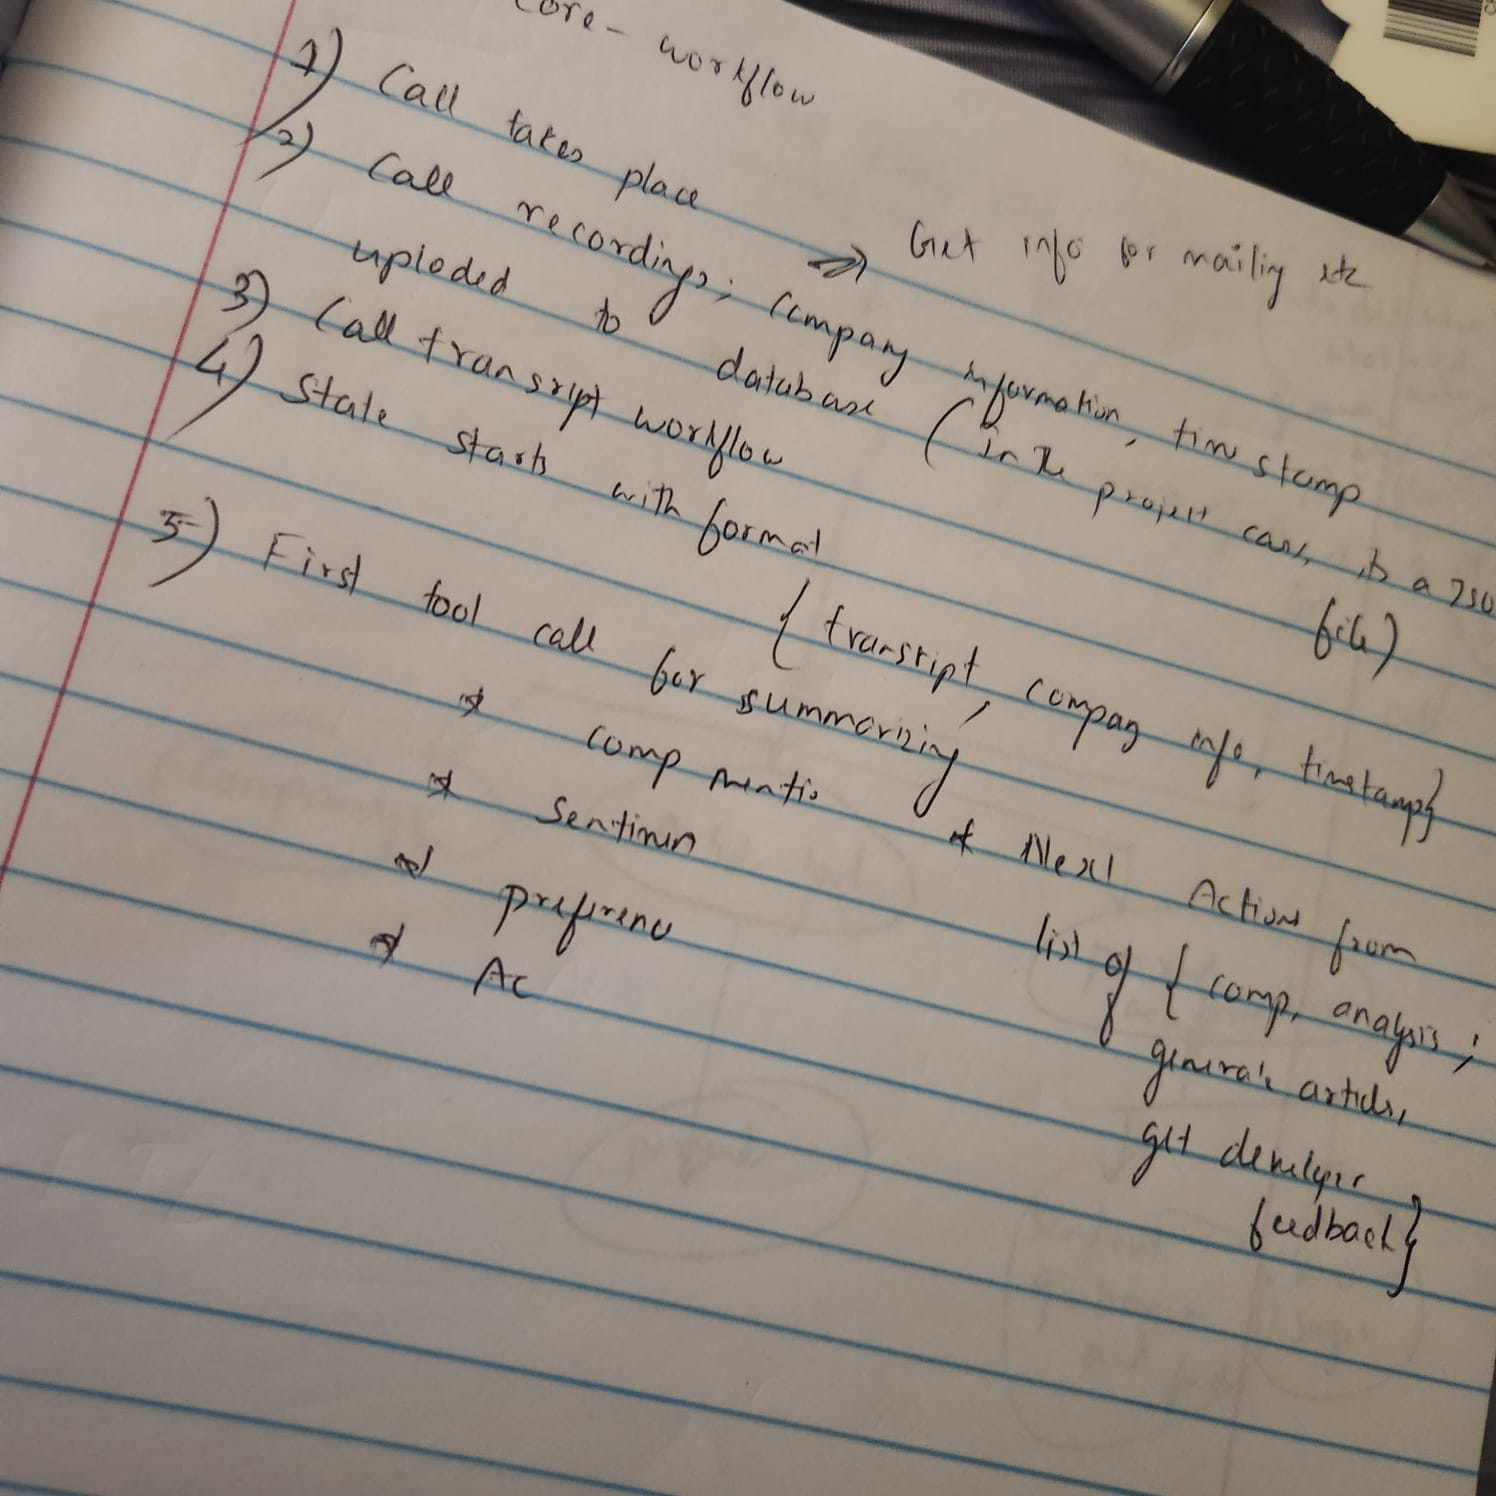 Core- workflow
1) Call takes place
⇒ Get info for mailing etc
2) Call recordings; Company information, timestamp
uploded to database (in the project case, to a JSO
file)
3) Call transript workflow
4) State starts with format
{ transript, company info, timestamp}
5) First tool call for summarizing
* comp mentio
* Sentimen
* preferenc
* Ac
* Next Actions from
list of { comp. analysis;
generate articles,
get developer
feedback}